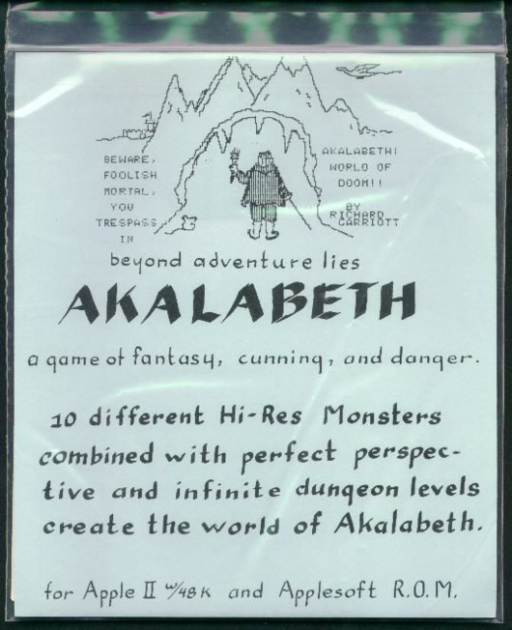 BEWARE,
FOOLISH
MORTAL,
YOU
TRESPASS
IN
AKALABETH!
WORLD OF
DOOM!!
BY
RICHARD
GARRIOTT
beyond adventure lies
AKALABETH
a game of fantasy, cunning, and danger.
10 different Hi-Res Monsters
combined with perfect perspec-
tive and infinite dungeon levels
create the world of Akalabeth.
for Apple II w/48K and Applesoft R.O.M.